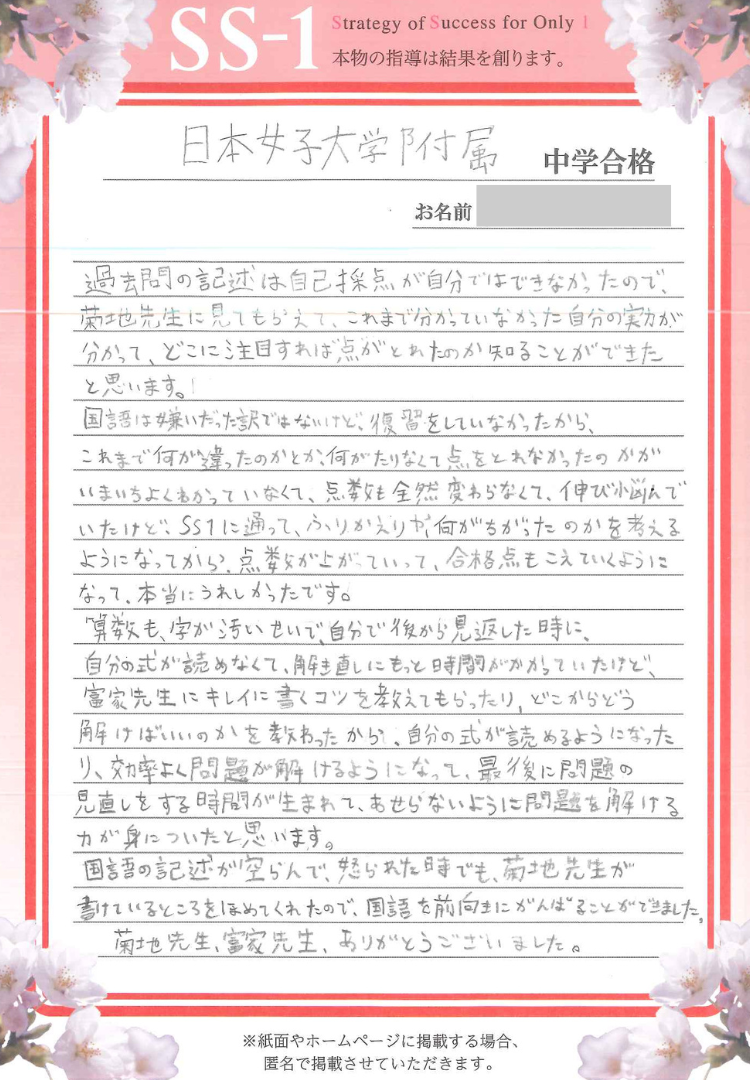 SS-1
Strategy of Success for Only 1
本物の指導は結果を創ります。
日本女子大学附属 中学合格
お名前
過去問の記述は自己採点が自分ではできなかったので、
菊地先生に見てもらえて、これまで分かっていなかった自分の実力が
分かって、どこに注目すれば点がとれたのか知ることができた
と思います。
国語は嫌いだった訳ではないけど、復習をしていなかったから、
これまで何が違ったのかとか、何がたりなくて点をとれなかったのかが
いまいちよくわかっていなくて、点数も全然変わらなくて、伸び悩んで
いたけど、SS1に通って、ふりかえりや、何がちがったのかを考える
ようになってから、点数が上がっていって、合格点もこえていくように
なって、本当にうれしかったです。
算数も、字が汚いせいで、自分で後から見返した時に、
自分の式が読めなくて、解き直しにもっと時間がかかっていたけど、
富家先生にキレイに書くコツを教えてもらったり、どこからどう
解けばいいのかを教わったから、自分の式が読めるようになった
り、効率よく問題が解けるようになって、最後に問題の
見直しをする時間が生まれて、あせらないように問題を解ける
力が身についたと思います。
国語の記述が空らんで、怒られた時でも、菊地先生が
書けているところをほめてくれたので、国語を前向きにがんばることができました。
菊地先生、富家先生、ありがとうございました。
※紙面やホームページに掲載する場合、
匿名で掲載させていただきます。